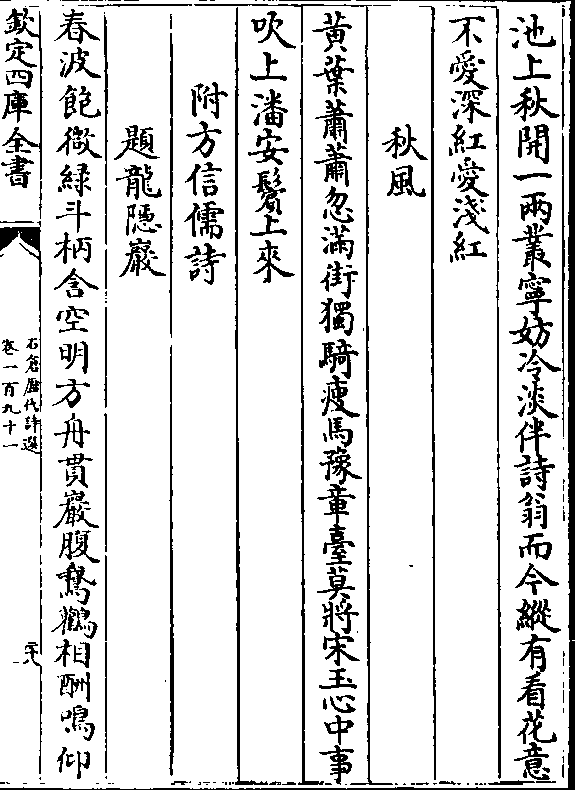 池上秋開一兩叢寧妨冷淡伴詩翁而今縱有看花意
不愛深紅愛淺紅
秋風
黃葉蕭蕭忽滿街獨騎瘦馬豫章臺莫將宋玉心中事
吹上潘安鬢上來
附方信儒詩
題龍隱巖
春波飽微緑斗柄含空明方舟貫巖腹鵞鸛相酬鳴仰
欽定四庫全書
石倉歷代詩選
卷一百九十一
二十八